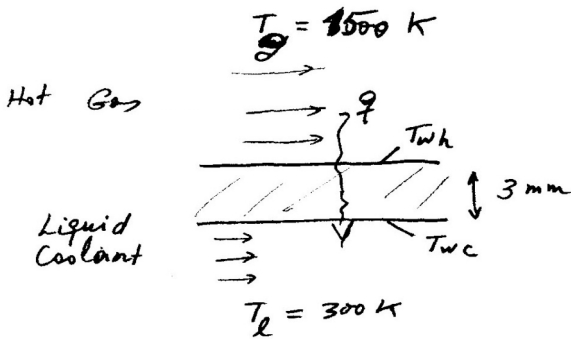 T_g = 1500 K
Hot Gas
q
T_wh
3 mm
Liquid
Coolant
T_wc
T_l = 300 K